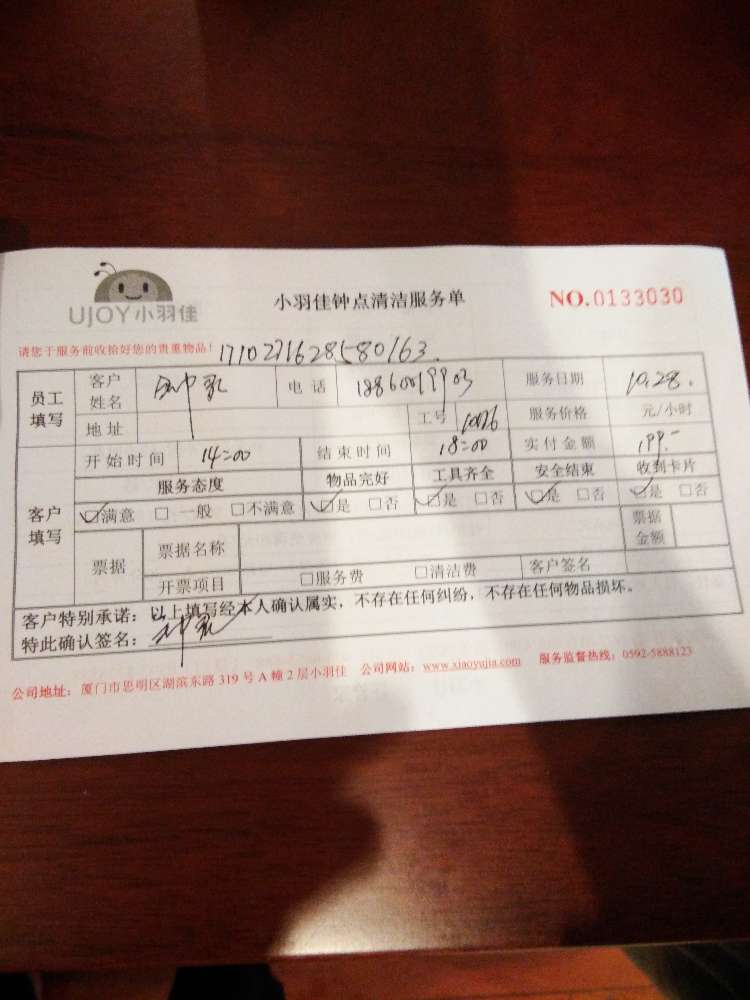 UJOY小羽佳
小羽佳钟点清洁服务单
NO.0133030
请您于服务前收拾好您的贵重物品!
员工填写 客户姓名 电话 服务日期 10.28.
地址 工号 服务价格 元/小时
客户填写 开始时间 14:00 结束时间 18:00 实付金额 199.-
服务态度 物品完好 工具齐全 安全结束 收到卡片
☑满意 □一般 □不满意 ☑是 □否 ☑是 □否 ☑是 □否 ☑是 □否
票据 票据名称 票据金额
开票项目 □服务费 □清洁费 客户签名
客户特别承诺:以上填写经本人确认属实,不存在任何纠纷,不存在任何物品损坏。
特此确认签名:
公司地址:厦门市思明区湖滨东路319号A幢2层小羽佳 公司网站:www.xiaoyujia.com 服务监督热线:0592-5888123